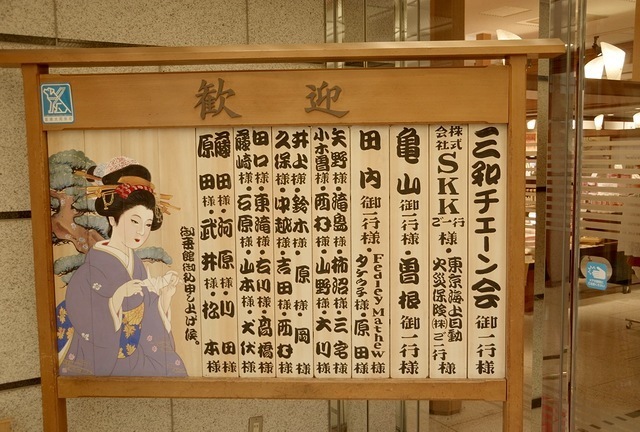 歓迎
三和チェーン会 御一行様
株式会社SKKご一行様・東京海上日動火災保険(株)ご一行様
亀山御一行様・曽根御一行様
田内御一行様・Fedley Mathew
タケウチ様・原田様
矢野様・滝島様・柿沼様・三宅様
小木曽様・西村様・山野様・大川様
井上様・鈴木様・原様・岡様
久保様・中越様・吉田様・西村様
田口様・東滝様・石川様・高橋様
藤崎様・石原様・山本様・犬伏様
藤田様・河原様・川田様
原田様・武井様・松本様
御来館御礼申し上げ候。